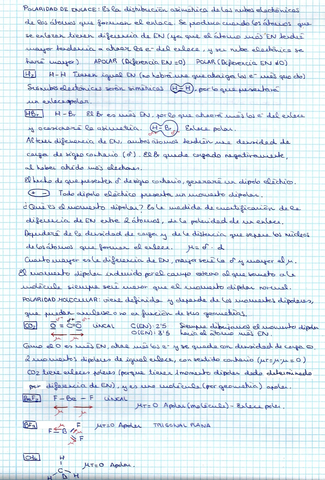 POLARIDAD DE ENLACE: Es la distribución asimétrica de las nubes electrónicas
de los átomos que forman el enlace. Se produce cuando los átomos que
se enlazan tienen diferencia de EN (ya que el átomo más EN tendrá
mayor tendencia a atraer los e- del enlace, y su nube electrónica se
hará mayor) APOLAR (Diferencia EN=0) POLAR (Diferencia EN ≠0)
H2 H-H Tienen igual EN (no habrá uno que atraiga los e- más que otro)
Sus nubes electrónicas serán simétricas H-H, por lo que presentará
un enlace apolar.
HBr H-Br El Br es más EN, por lo que atraerá más los e- del enlace
y ocasionará la asimetría. H-Br Enlace polar.
Al tener diferencia de EN, ambos átomos tendrán una densidad de
carga de signo contrario (δ). El Br queda cargado negativamente,
al haber atraído más electrones.
El hecho de que presente δ de signo contrario, generará un dipolo eléctrico.
+ - Todo dipolo eléctrico presenta un momento dipolar.
¿Qué es el momento dipolar? Es la medida de cuantificación de la
diferencia de EN entre 2 átomos, de la polaridad de un enlace.
Dependerá de la densidad de carga y de la distancia que separe los núcleos
de los átomos que forman el enlace. μ= δ · d
Cuanto mayor es la diferencia de EN, mayor será la δ y mayor el μ.
El momento dipolar inducido por el campo externo al que someto a la
molécula siempre será mayor que el momento dipolar normal.
POLARIDAD MOLECULAR: viene definida y depende de los momentos dipolares,
que pueden anularse o no en función de sus geometrías.
CO2 O=C=O LINEAL C(EN): 2'5 Siempre dibujamos el momento dipolar
μ μ O(EN): 3'5 hacia el átomo más EN.
Como el O es más EN, atrae más los e- y se queda con densidad de carga ⊖.
2 momentos dipolares de igual enlace, con sentido contrario (μ+μ=μ=0)
CO2 tiene enlaces polares (porque tienen 1 momento dipolar dado determinado
por diferencia de EN), y es una molécula (por geometría) apolar.
BeF2 F-Be-F LINEAL
μ μ μT=0 Apolar (molécula) - Enlace polar.
BF3 F B F F μT=0 Apolar TRIGONAL PLANA
CH4 H C H H H μT=0 Apolar.